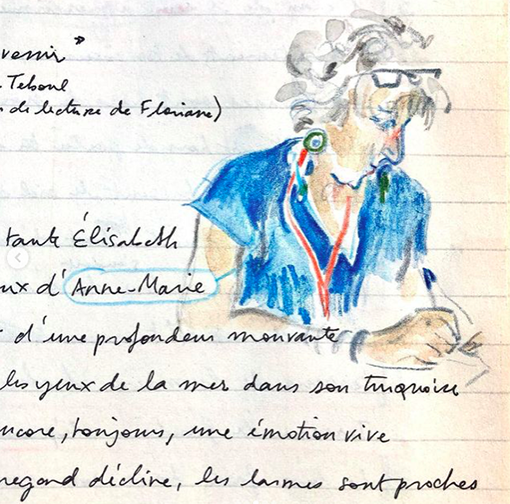 venir"
Teboul
de lecture de Floriane)
tante Élisabeth
ux d'Anne-Marie
d'une profondeur mouvante
les yeux de la mer dans son turquoise
ncore, toujours, une émotion vive
regard décline, les larmes sont proches